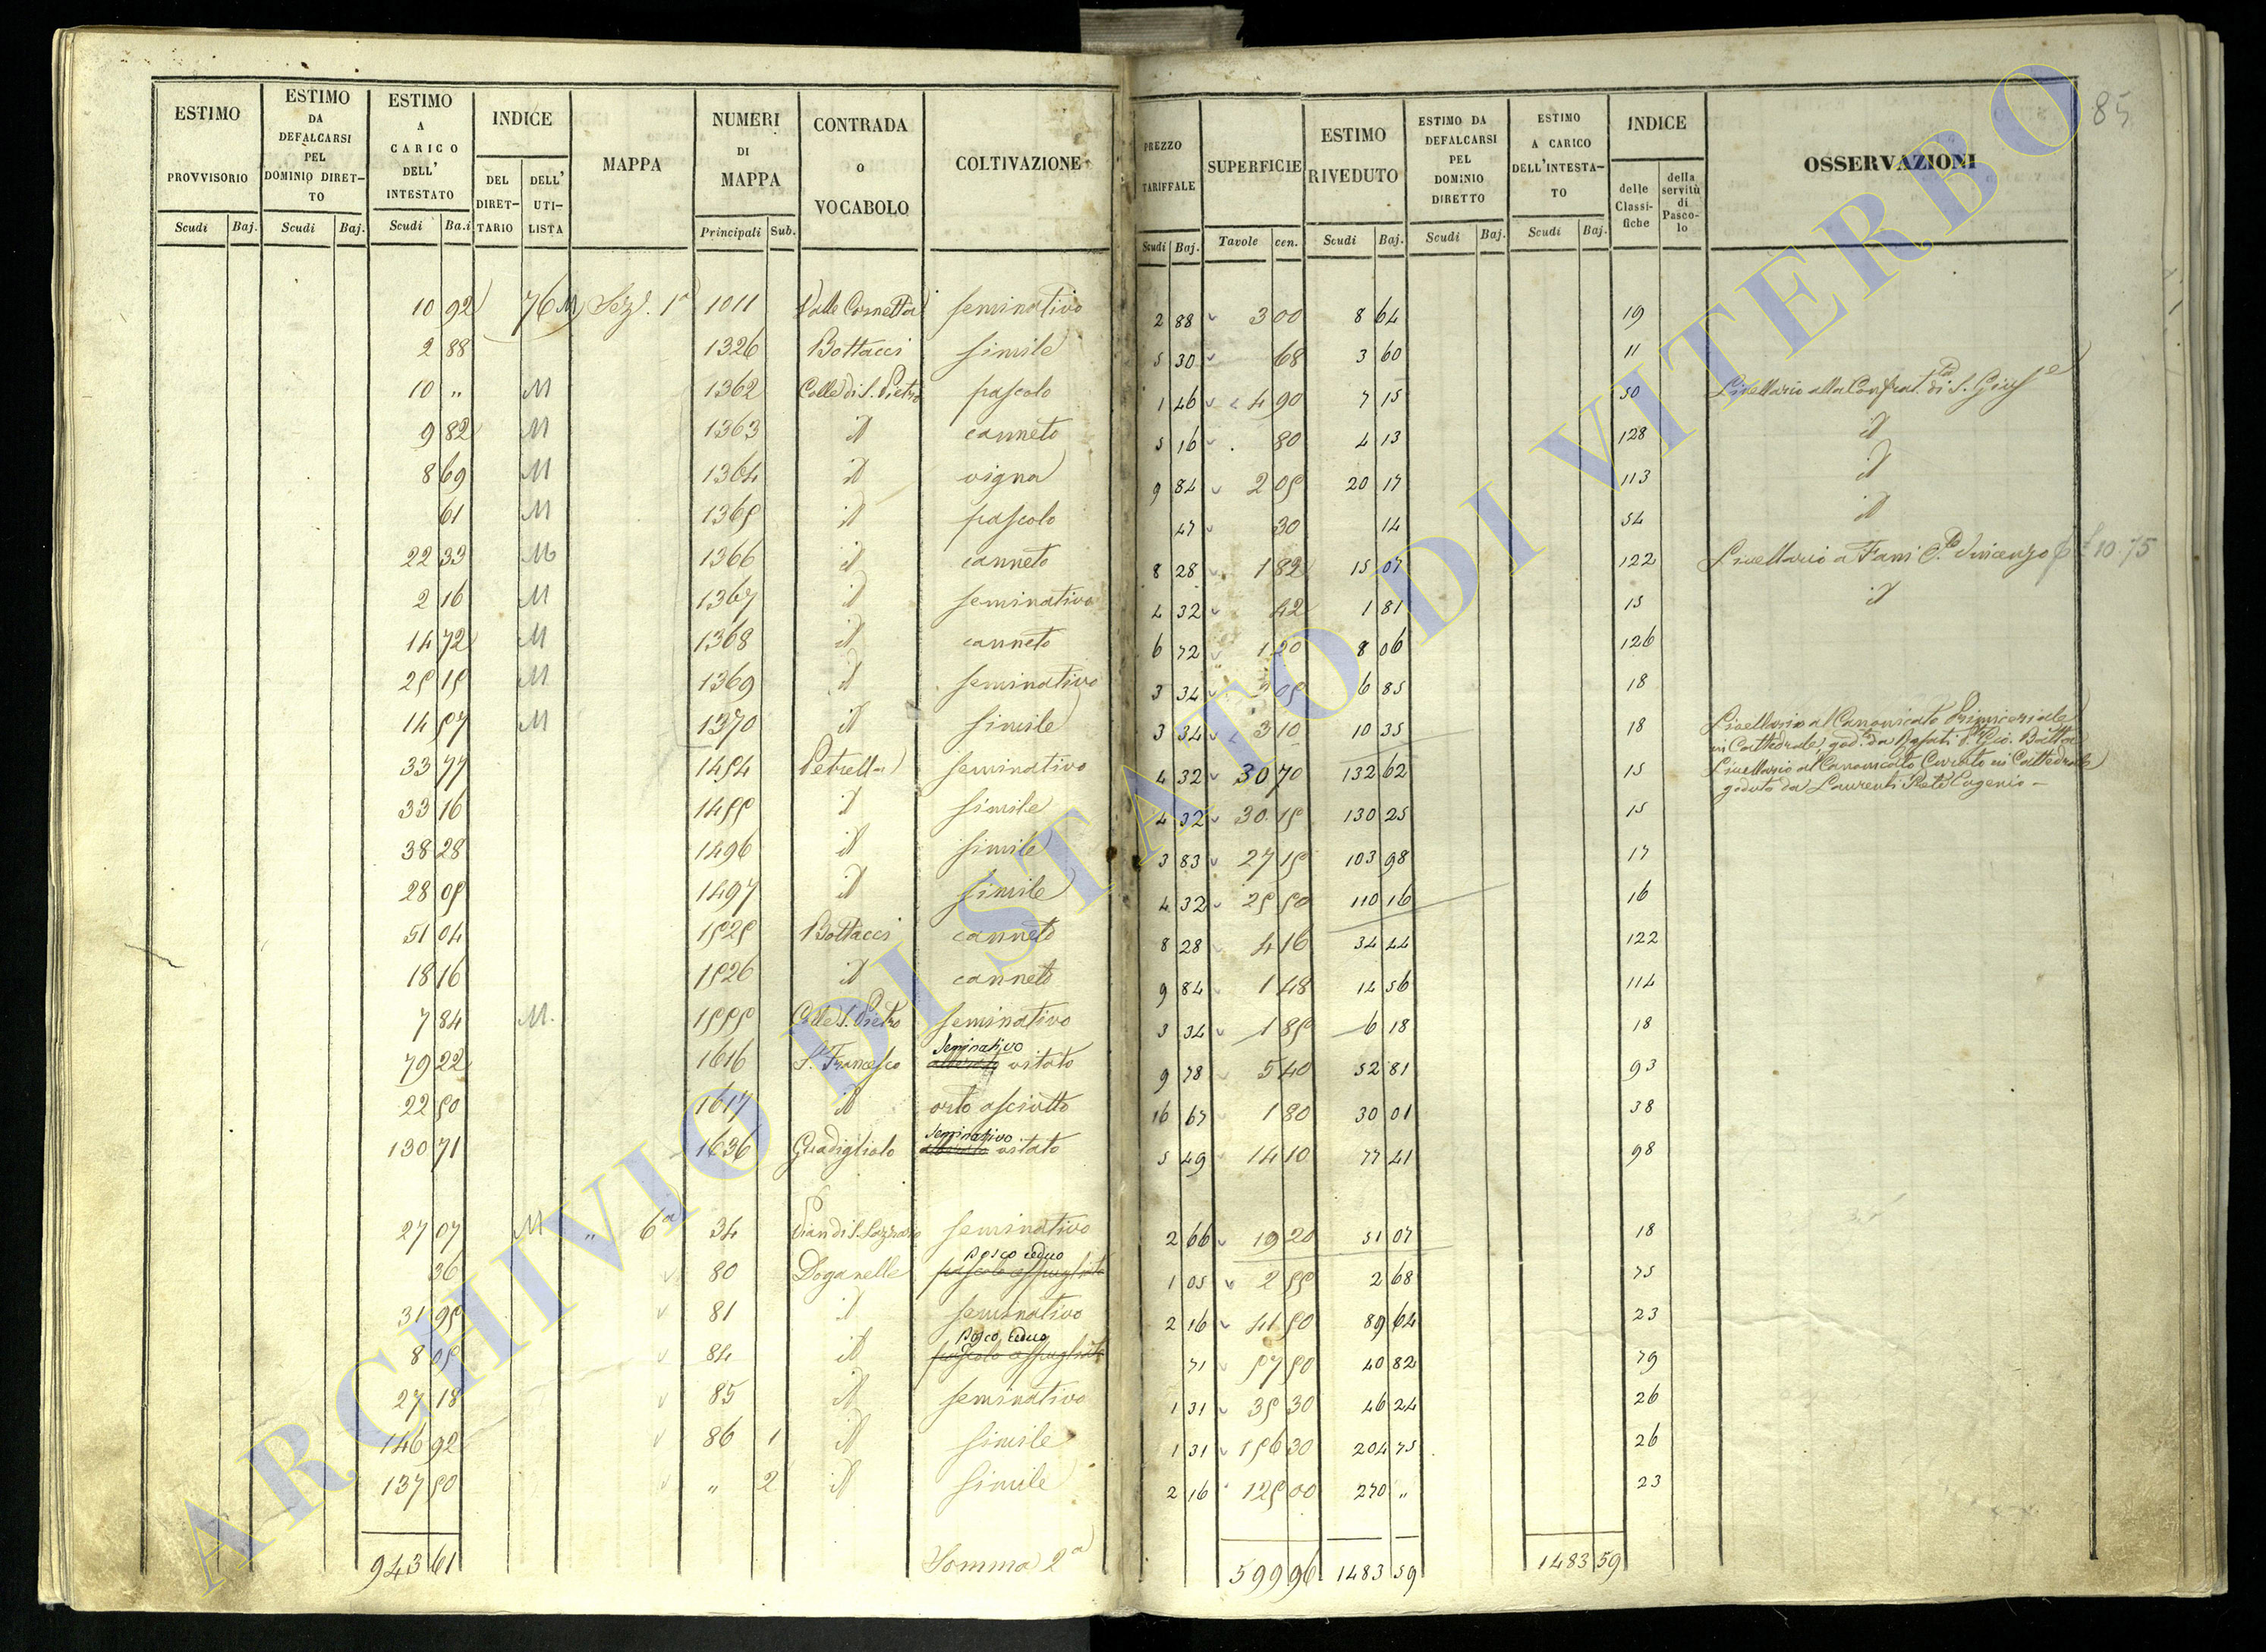 85
ESTIMO PROVVISORIO Scudi Baj.
ESTIMO DA DEFALCARSI PEL DOMINIO DIRETTO Scudi Baj.
ESTIMO A CARICO DELL' INTESTATO Scudi Ba.i
INDICE DEL DIRETTARIO DELL' UTILISTA
MAPPA
NUMERI DI MAPPA Principali Sub.
CONTRADA o VOCABOLO
COLTIVAZIONE
PREZZO TARIFFALE Scudi Baj.
SUPERFICIE Tavole cen.
ESTIMO RIVEDUTO Scudi Baj.
ESTIMO DA DEFALCARSI PEL DOMINIO DIRETTO Scudi Baj.
ESTIMO A CARICO DELL'INTESTATO Scudi Baj.
INDICE delle Classifiche della servitù di Pascolo
OSSERVAZIONI
10 92 76 M Sez. 1a 1011 Valle Cornetta seminativo 2 88 3 00 8 64 19
2 88 1326 Bottacci simile 5 30 68 3 60 11
10 „ M 1362 Colle di S. Pietro pascolo 1 46 4 90 7 15 50 Livellario alla Confrat.ta di S. Gius.e
9 82 M 1363 id canneto 5 16 80 4 13 128 id
8 69 M 1364 id vigna 9 84 2 05 20 17 113 id
61 M 1365 id pascolo 47 30 14 54 id
22 33 M 1366 id canneto 8 28 1 82 15 07 122 Livellario a Fani C.te Vincenzo 10.75
2 16 M 1367 id seminativo 4 32 42 1 81 15 id
14 72 M 1368 id canneto 6 72 1 20 8 06 126
25 15 M 1369 id seminativo 3 34 2 05 6 85 18
14 57 M 1370 id simile 3 34 3 10 10 35 18 Livellario al Canonicato Primiceriale
in Cattedrale, god.to da Gio. Batta
33 77 1454 Petrella seminativo 4 32 30 70 132 62 15 Livellario al Canonicato Curato in Cattedrale
goduto da Laurenti Prete Eugenio
33 16 1455 id simile 4 32 30 15 130 25 15
38 28 1496 id simile 3 83 27 15 103 98 17
28 05 1497 id simile 4 32 25 50 110 16 16
51 04 1525 Bottacci canneto 8 28 4 16 34 44 122
18 16 1526 id canneto 9 84 1 48 14 56 114
7 84 M. 1555 Colle S. Pietro seminativo 3 34 1 85 6 18 18
79 22 1616 S. Francesco seminativo vitato 9 78 5 40 52 81 93
22 50 1617 id orto asciutto 16 67 1 80 30 01 38
130 71 1636 Gradigliolo seminativo vitato 5 49 14 10 77 41 98
27 07 M „ 6a 34 Pian di S. Lazzaro seminativo 2 66 19 20 51 07 18
36 80 Doganelle Bosco ceduo 1 05 2 55 2 68 75
31 95 81 id seminativo 2 16 41 50 89 64 23
8 05 84 id Bosco ceduo 71 57 50 40 82 79
27 18 85 id seminativo 1 31 35 30 46 24 26
146 92 86 1 id simile 1 31 156 30 204 75 26
137 50 „ 2 id simile 2 16 125 00 270 „ 23
943 61 Somma 2a 599 96 1483 59 1483 59
ARCHIVIO DI STATO DI VITERBO